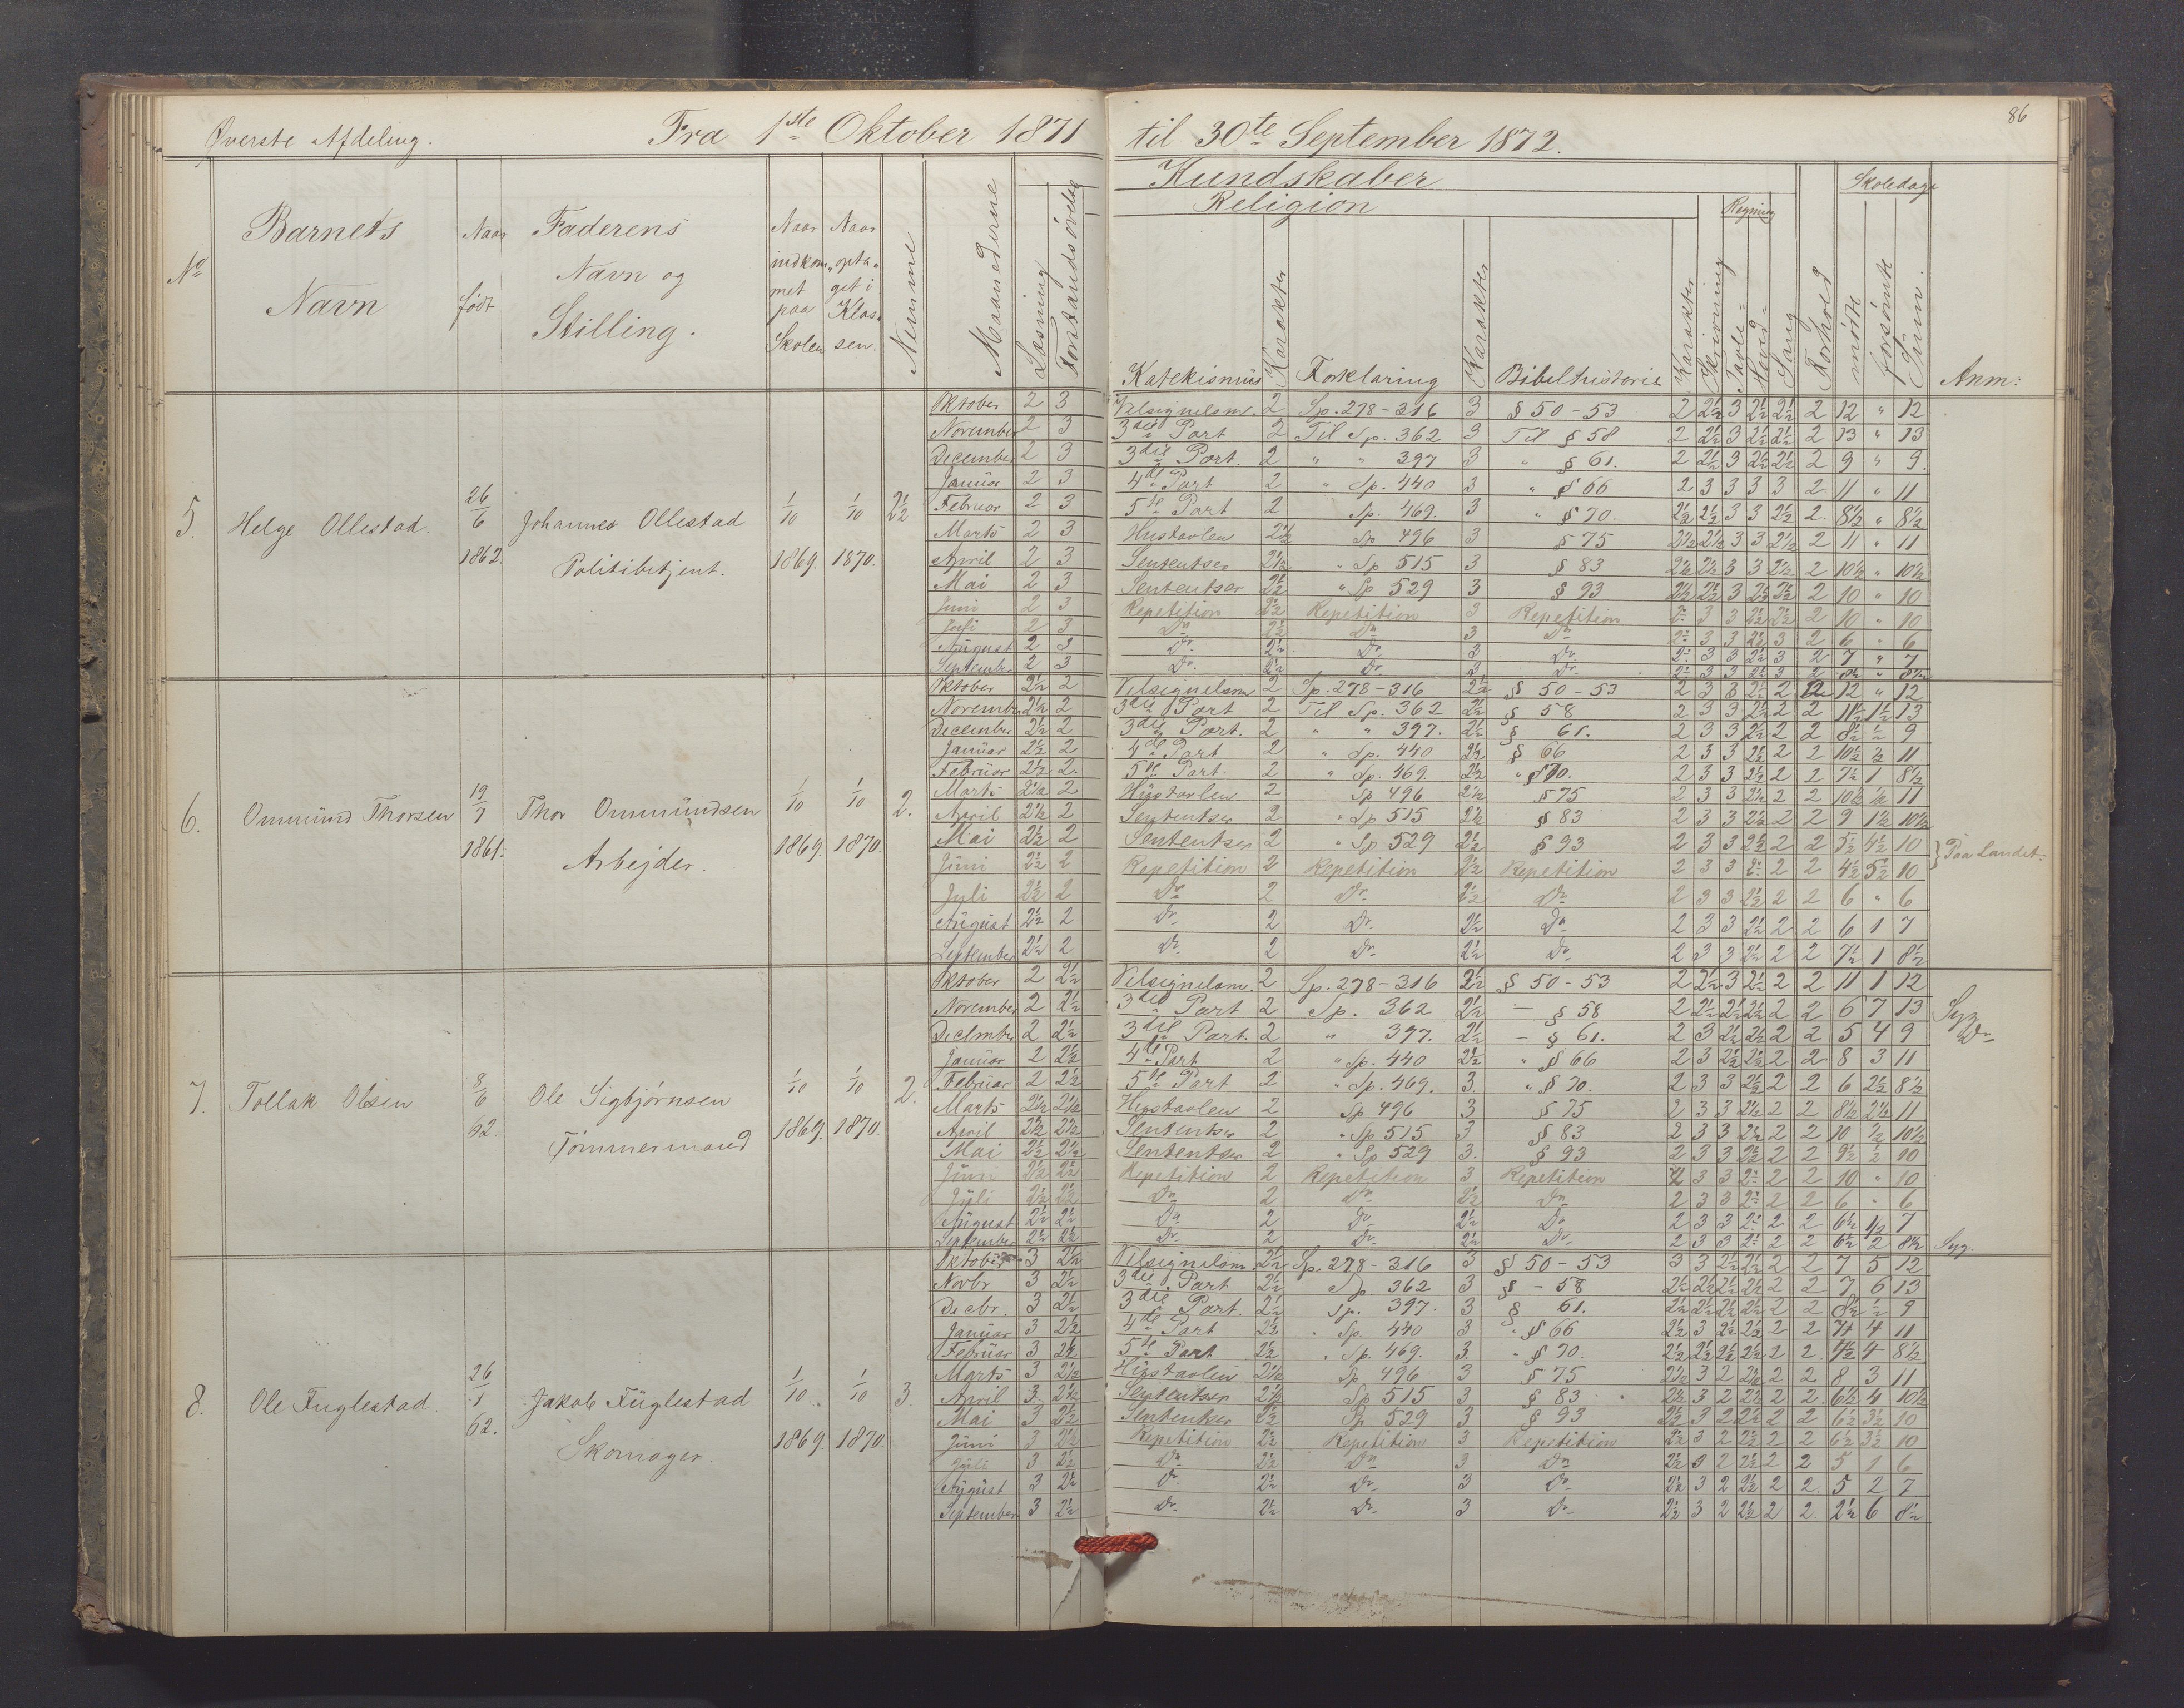 86
Øverste Afdeling. Fra 1ste Oktober 1871 til 30te September 1872.
Kundskaber
Religion Regning Skoledage
No Barnets Navn Naar født Faderens Navn og Stilling. Naar indkommet paa Skolen Naar optaget i Klassen. Nemme Maanederne Læsning Forstandsøvelse Katekismus Karakter Forklaring Karakter Bibelhistorie Karakter Skrivning Tavle= Hoved= Sang Forhold mødte forsømte Sum. Anm:
5. Helge Ollestad. 26/6 1862. Johannes Ollestad Politibetjent. 1/10 1869. 1/10 1870. 2½
Oktober 2 3 Velsignelsen. 2 Sp. 278-316 3 § 50-53 2 2½ 3 2½ 2½ 2 12 " 12
November 2 3 3die Part 2 Til Sp. 362 3 Til § 58 2 2½ 3 2½ 2½ 2 13 " 13
December 2 3 3die Part. 2 " " 397 3 " § 61. 2 2½ 3 2½ 2½ 2 9 " 9.
Januar 2 3 4de Part 2 " Sp. 440 3 " § 66 2 3 3 3 3 2 11 " 11
Februar 2 3 5te Part 2 Sp. 469. 3 " § 70. 2½ 2½ 3 3 2½ 2. 8½ " 8½
Marts 2 3 Hustavlen 2½ Sp 496 3 § 75 2½ 2½ 3 3 2½ 2 11 " 11
April 2 3 Sententser 2½ " Sp 515 3 § 83 2½ 2½ 3 3 2½ 2 10½ " 10½
Mai 2 3 Sententser 2½ " Sp 529 3 § 93 2½ 2½ 3 2½ 2½ 2 10 " 10
Juni 2 3 Repetition 2½ Repetition 3 Repetition 2½ 3 3 2½ 2½ 2 10 " 10
Juli 2 3 Do 2½ Do 3 Do 2½ 3 3 2½ 3 2 6 " 6
August 2 3 Do. 2½ Do. 3 Do 2½ 3 3 2½ 3 2 7 " 7
September 2 3 Do. 2½ Do. 3 Do. 2½ 3 3 2½ 3 2 8½ " 8½
6. Ommund Thorsen 19/7 1861. Thor Ommundsen Arbejder. 1/10 1869. 1/10 1870. 2.
Oktober 2½ 2 Velsignelsen 2 Sp. 278-316 2½ § 50-53 2 3 3 2½ 2 2 12 " 12
November 2½ 2 3die Part 2 Til Sp. 362 2½ § 58 2 3 3 2½ 2 2 11½ 1½ 13
December 2½ 2 3die Part. 2 " " 397. 2½ § 61. 2 3 3 2½ 2 2 8½ ½ 9
Januar 2½ 2 4de Part 2 " Sp. 440 2½ § 66 2 3 3 2½ 2 2 10½ ½ 11
Februar 2½ 2. 5te Part. 2 " Sp. 469. 2½ " § 70. 2 3 3 2½ 2 2 7½ 1 8½
Marts 2½ 2 Hustavlen 2 Sp 496 2½ § 75 2 3 3 2½ 2 2 10½ ½ 11
April 2½ 2 Sententser 2 " Sp 515 2½ § 83 2 3 3 2½ 2 2 9 1½ 10½
Mai 2½ 2 Sententser 2 " Sp 529 2½ § 93 2 3 3 2½ 2 2 5½ 4½ 10 } Paa Landet.
Juni 2½ 2 Repetition 2 Repetition 2½ Repetition 2 3 3 2½ 2 2 4½ 5½ 10
Juli 2½ 2 Do 2 Do 2½ Do 2 3 3 2½ 2 2 6 " 6
August 2½ 2 Do 2 Do 2½ Do 2 3 3 2½ 2 2 6 1 7
September 2½ 2 Do 2 Do. 2½ Do. 2 3 3 2½ 2 2 7½ 1 8½
7. Tollak Olsen 8/6 62. Ole Sigbjørnsen Tømmermand 1/10 1869. 1/10 1870. 2.
Oktober 2 2½ Velsignelsen. 2 Sp. 278-316 2½ § 50-53 2 2½ 3 2½ 2 2 11 1 12
November 2 2½ 3die Part 2 Sp. 362 2½ - § 58 2 2½ 2½ 2½ 2 2 6 7 13 Syg
December 2 2½ 3die Part. 2 " 397. 2½ - § 61. 2 3 2½ 2½ 2 2 5 4 9 Do
Januar 2 2½ 4de Part 2 " Sp. 440 2½ " § 66 2 3 2½ 2½ 2 2 8 3 11
Februar 2 2½ 5te Part 2 " Sp. 469. 3. " § 70. 2 3 3 2½ 2 2 6 2½ 8½
Marts 2½ 2½ Hustavlen 2 Sp 496 3 § 75 2 3 3 2½ 2 2 8½ 2½ 11
April 2½ 2½ Sententser 2 " Sp 515 3 § 83 2 3 3 2½ 2 2 10 ½ 10½
Mai 2½ 2½ Sententser 2 " Sp 529 3. § 93 2 3 3 2½ 2 2 9½ ½ 10
Juni 2½ 2½ Repetition 2 Repetition 3 Repetition 2 3 3 2½ 2 2 10 " 10
Juli 2½ 2½ Do 2 Do 2½ Do 2 3 3 2½ 2 2 6 " 6
August 2½ 2½ Do 2 Do 2½ Do 2 3 3 2½ 2 2 6½ 1/2 7
September 2½ 2½ Do. 2 Do. 2½ Do. 2 3 3 2½ 2 2 6½ 2 8½ Syg.
8. Ole Fuglestad. 26/1 62. Jakob Fuglestad Skomager. 1/10 1869. 1/10 1870 3.
Oktober 3 2½ Velsignelsen 2½ Sp. 278-316 3 § 50-53 3 3 2½ 2½ 2 2 7 5 12
Novbr 3 2½ 3die Part 2½ Sp. 362 3 § - 58 2½ 2½ 2½ 2½ 2 2 7 6 13
Decbr. 3 2½ 3die Part. 2½ Sp. 397. 3 § 61. 2½ 2½ 2½ 2½ 2 2 8½ ½ 9
Januar 3 2½ 4de Part 2½ " Sp. 440 3 " § 66 2½ 3 2½ 2½ 2 2 7 4 11
Februar 3 2½ 5te Part 2½ " Sp. 469. 3. " § 70. 2½ 2½ 2½ 2½ 2 2. 4½ 4 8½
Marts 3 2½ Hustavlen 2½ Sp 496 3 § 75 2½ 3 2 2½ 2 2 8 3 11
April 3. 2½ Sententser 2½ Sp 515 3 § 83 2½ 3 2 2½ 2 2 6½ 4 10½
Mai 3 2½ Sententser 2½ Sp 529 3 § 93 2½ 3 2 2½ 2 2 6½ 3½ 10
Juni 3 2½ Repetition 2½ Repetition 3 Repetition 2½ 3 2 2½ 2 2 6½ 3½ 10
Juli 3 2½ Do 2½ Do 3 Do 2½ 3 2 2½ 2 2 5 1 6
August 3 2½ Do. 2½ Do. 3 Do 2½ 3 2 2½ 2 2. 5 2 7
September 3 2½ Do. 2½ Do. 3 Do. 2½ 3 2 2½ 2 2. 2½ 6 8½